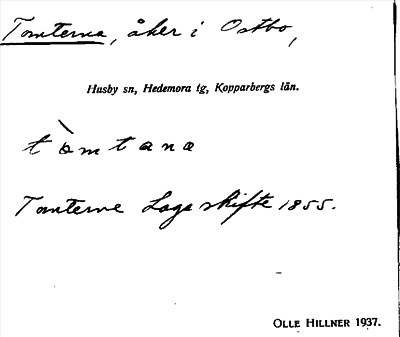 Tomterna, åker i Ostbo,
Husby sn, Hedemora tg, Kopparbergs län.
tòmtana
Tomterne Laga skifte 1855.
OLLE HILLNER 1937.